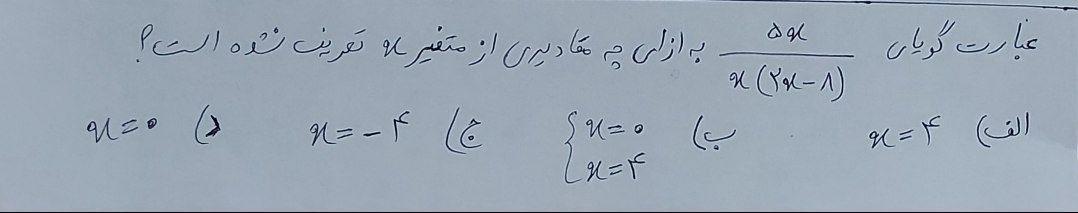 عبارت گویای ۵x / x(۲x-۸) به ازای چه مقادیری از متغیر x تعریف نشده است؟
الف) x=۴ ب) {x=۰ x=۴ ج) x=-۴ د) x=۰